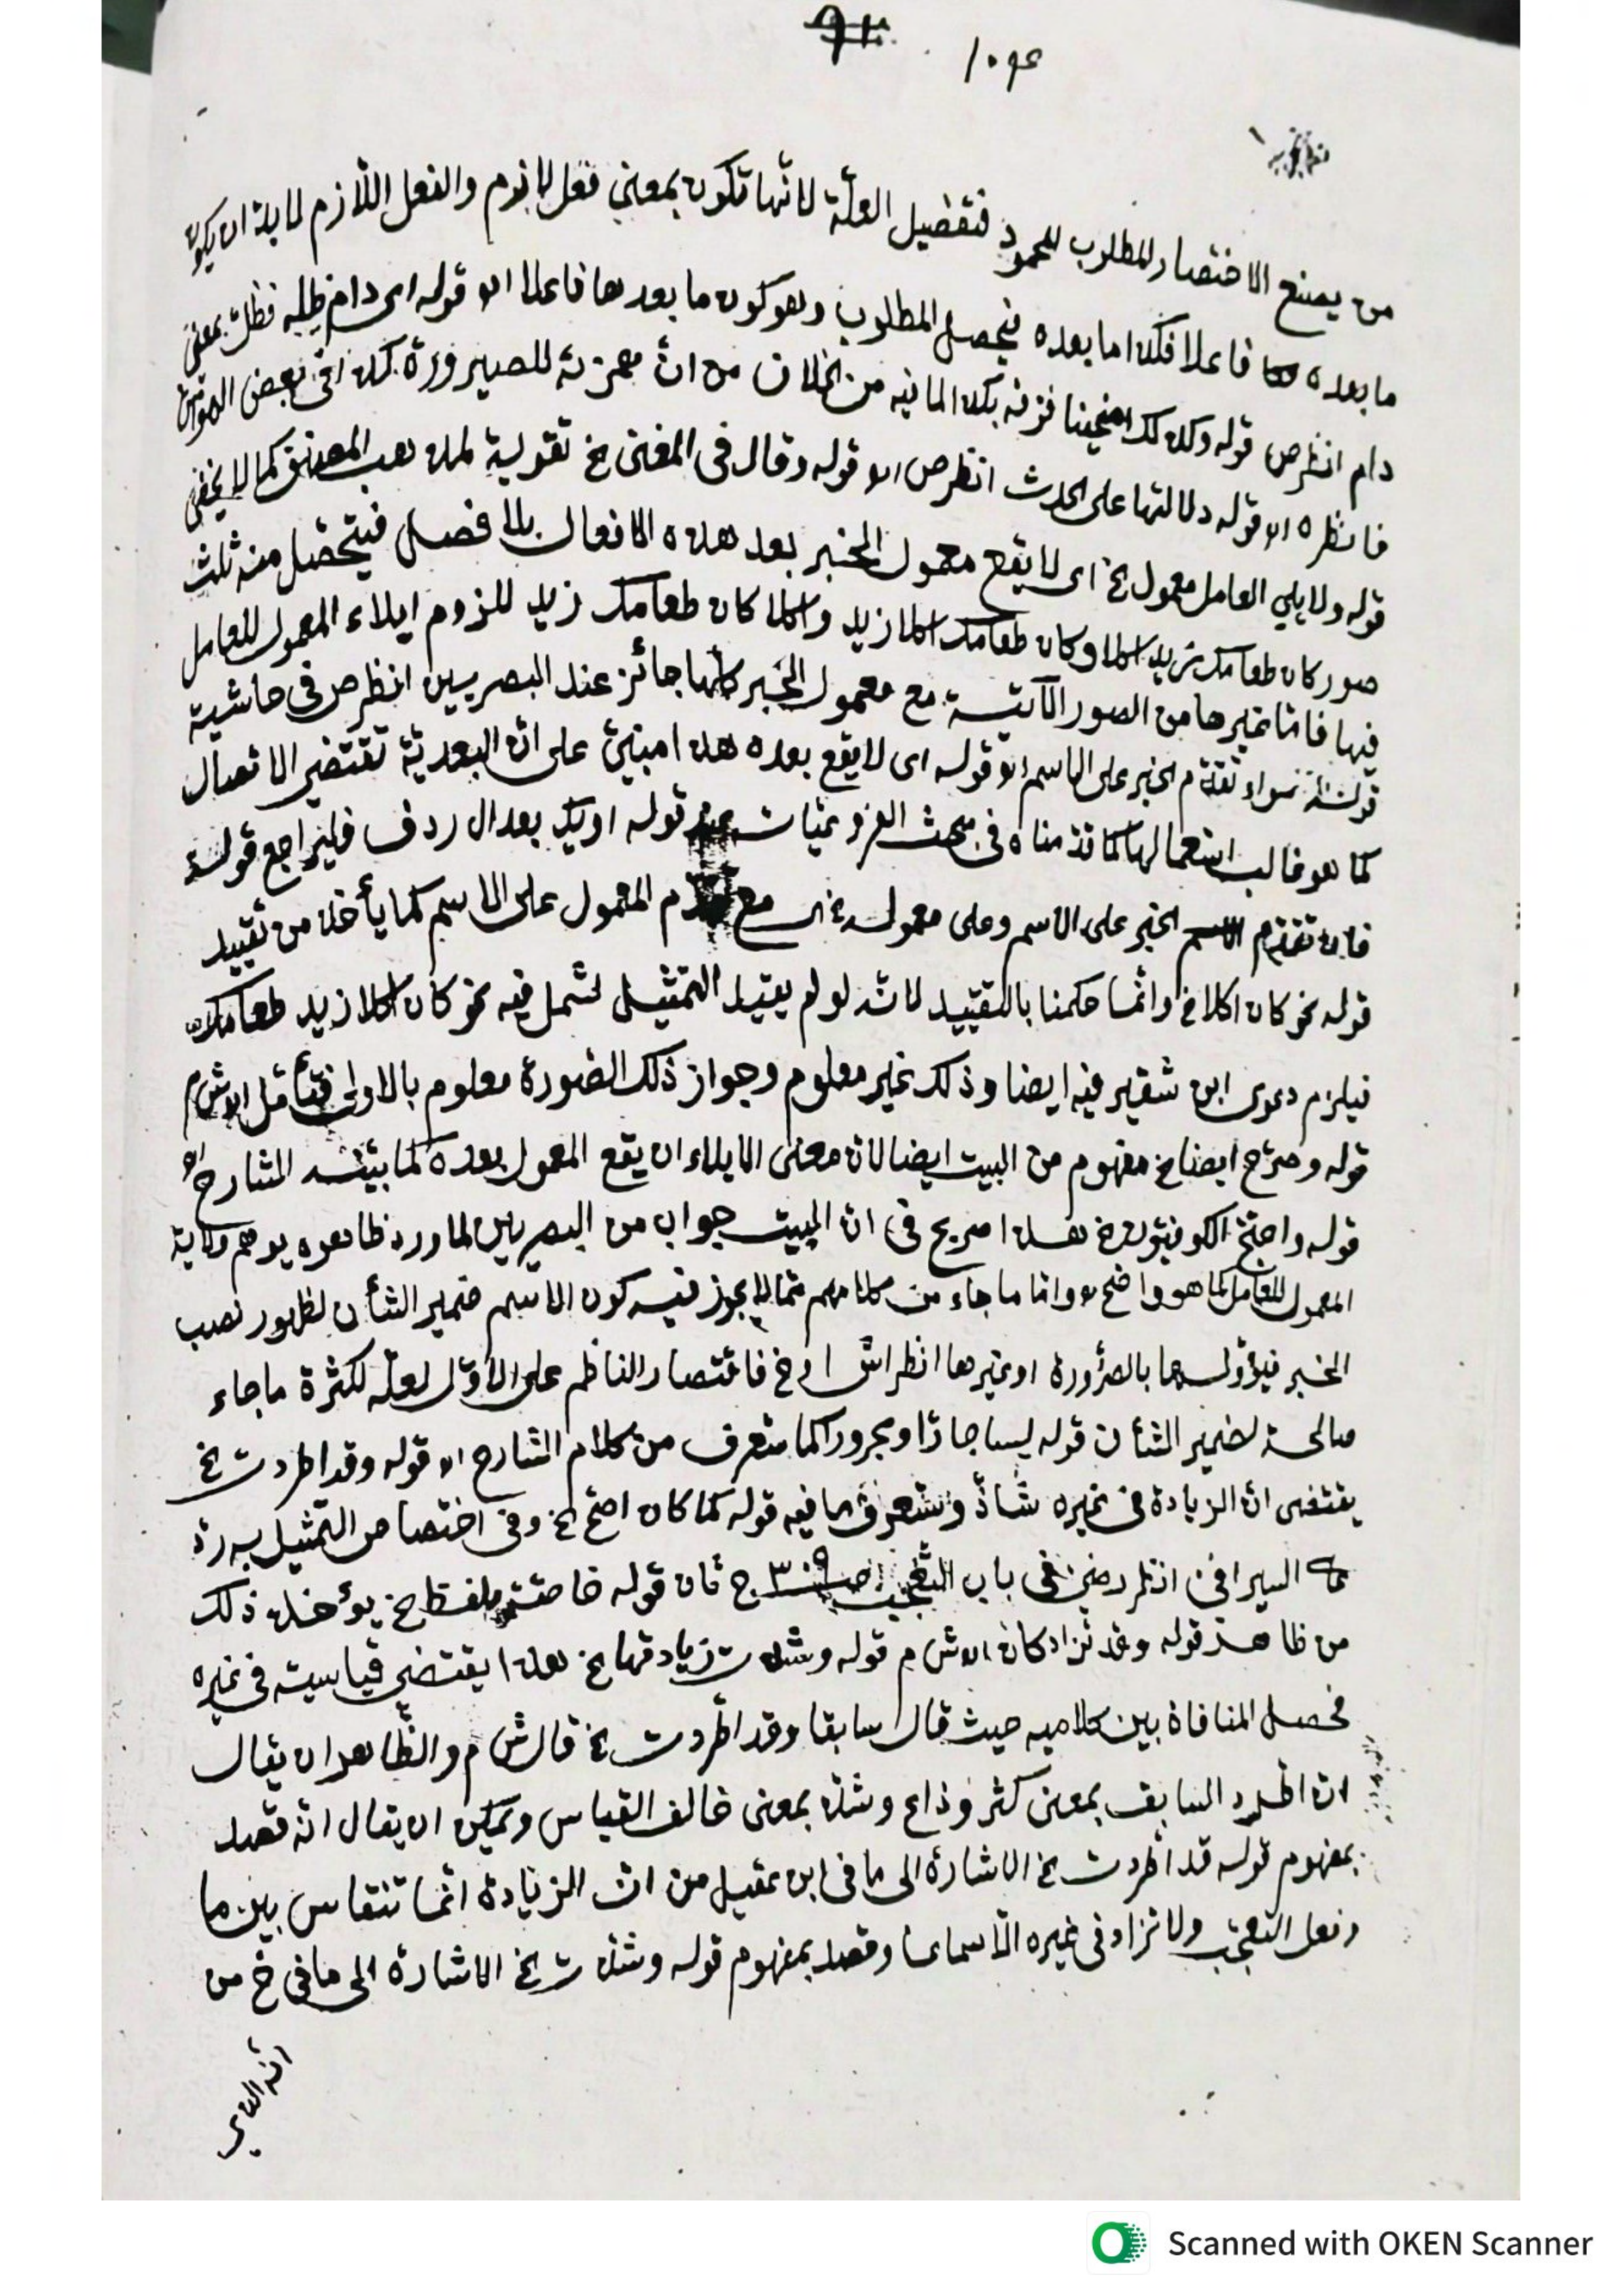 ١٠٩٤
من يمنع الاختصار للمطلوب فتفضيل العلّة لانّها تكون بمعنى فعل لازم والفعل اللّازم لا بدّ ان يكون
ما بعده فاعلا فكذا ما بعده فيحصل المطلوب وهو كون ما بعدها فاعلا اه قوله اى دام ظله فظلّ بمعنى
دام انظر ص قوله وكذلك من الخلاف من انّ همزته للصيرورة كذا فى بعض الهوامش
فانظره اه قوله دلالتها على الحدث انظر ص اه قوله وقال فى المغنى الخ تقوية لمذهب المصنف كما لا يخفى
قوله ولا يلي العامل معمول الخ اى لا يقع معمول الخبر بعد هذه الافعال بلا فصل فيتحصّل منه ثلث
صور كان طعامك زيد اكلا وكان طعامك اكلا زيد واكلا كان طعامك زيد للزوم ايلاء المعمول للعامل
فيها فامّا غيرها من الصور الآتية مع معمول الخبر كلّها جائز عند البصريين انظر ص فى حاشية
قوله سواء تقدّم الخبر على الاسم اه قوله اى لا يقع بعده هذا مبنيّ على انّ البعديّة تقتضى الاتّصال
كما هو غالب استعمالها كما قدّمناه فى بحث قوله او يك بعد ال ردف فليراجع قوله
فان تقدّم الخبر على الاسم وعلى معموله اى مع المعمول على الاسم كما يأخذ من تقييد
قوله نحو كان اكلا الخ وانّما حكمنا بالتّقييد لانّه لو لم يقيّد التمثيل لشمل فيه نحو كان اكلا زيد طعامك
فيلزم دعوى ابن شقير فيه ايضا وذلك غير معلوم وجواز ذلك الصّورة معلوم بالاولى فتأمّل اه ش م
قوله وصرّح ايضا الخ مفهوم من البيت ايضا لانّ معنى الايلاء ان يقع المعمول بعده كما بيّنه الشارح اه
قوله واحتجّ الكوفيّون الخ هذا صريح فى انّ البيت جواب من البصريين لما ورد ظاهره يوهم
المعمول للعامل كما هو واضح اه وامّا ما جاء من كلامهم ممّا لا يجوز فيه كون الاسم ضمير الشأن لظهور نصب
الخبر فيؤول بالضّرورة او غيرها انظر اش اه الخ فاقتصار الناظم على الاوّل لعلّه لكثرة ما جاء
صالحة لضمير الشأن قوله ليسا جارّا ومجرورا كما ستعرف من كلام الشارح اه قوله وقد اطردت الخ
يقتضى انّ الزيادة فى غيره شاذّ وستعرف ما فيه قوله كما كان اصحّ الخ وفى اختصاص التمثيل به ردّ
السيرافى انظر رضى فى باب التّعجّب ص ٣٠٩ ج فان قوله الخ يؤخذ ذلك
من ظاهر قوله وقد تزاد كان اه ش م قوله وشذّت زيادتها الخ هذا يقتضى قياسيته فى غيره
فحصل المنافاة بين كلاميه حيث قال سابقا وقد اطّردت الخ قال ش م والظّاهر ان يقال
انّ اطّرد السابق بمعنى كثر وذاع وشذّ بمعنى خالف القياس ويمكن ان يقال انّه قصد
بمفهوم قوله قد اطّردت الخ الاشارة الى ما فى ابن عقيل من انّ الزيادة انّما تنقاس بين ما
وفعل التعجّب ولا تزاد فى غيره الّا سماعا وقصد بمفهوم قوله وشذّت الخ الاشارة الى ما فى خ من
Scanned with OKEN Scanner